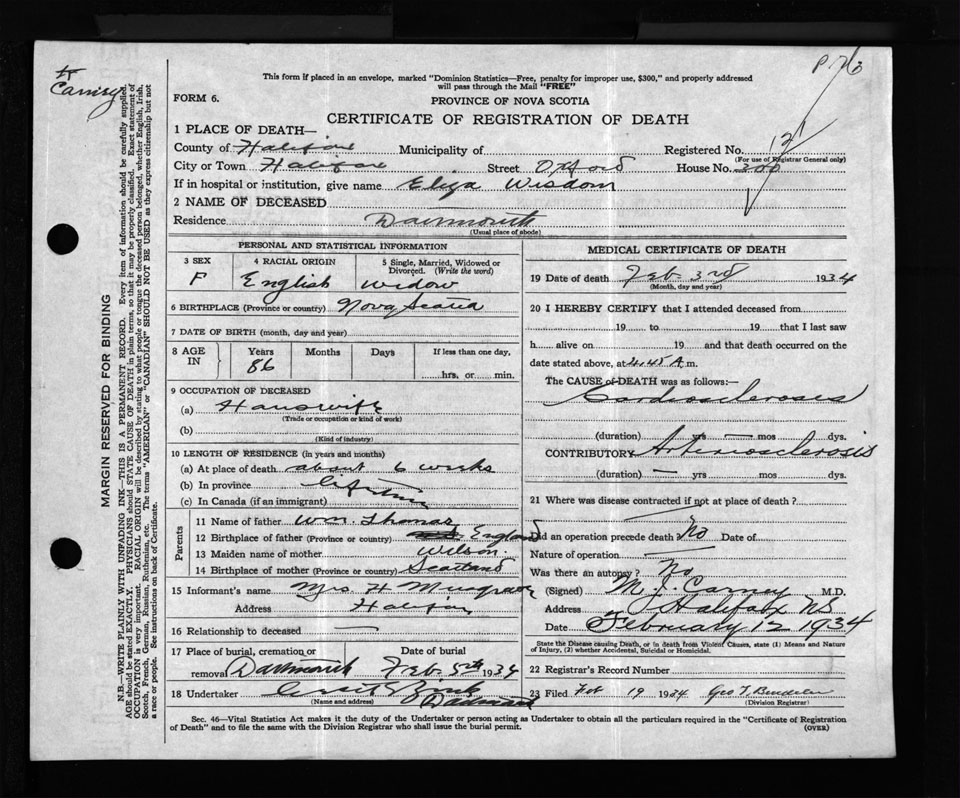 P 76
Carney
This form if placed in an envelope, marked "Dominion Statistics—Free, penalty for improper use, $300," and properly addressed
will pass through the Mail "FREE"
FORM 6.
PROVINCE OF NOVA SCOTIA
CERTIFICATE OF REGISTRATION OF DEATH
1 PLACE OF DEATH—
County of Halifax Municipality of Registered No. 121
(For use of Registrar General only)
City or Town Halifax Street Oxford House No. 300
If in hospital or institution, give name Eliza Wisdom
2 NAME OF DECEASED
Residence Dartmouth
(Usual place of abode)
PERSONAL AND STATISTICAL INFORMATION
3 SEX 4 RACIAL ORIGIN 5 Single, Married, Widowed or Divorced. (Write the word)
F English Widow
6 BIRTHPLACE (Province or country) Nova Scotia
7 DATE OF BIRTH (month, day and year)
8 AGE IN Years Months Days If less than one day,
86 hrs. or min.
9 OCCUPATION OF DECEASED
(a) Housewife
(Trade or occupation or kind of work)
(b)
(Kind of industry)
10 LENGTH OF RESIDENCE (in years and months)
(a) At place of death about 6 weeks
(b) In province Lifetime
(c) In Canada (if an immigrant)
Parents
11 Name of father Wm. Thomas
12 Birthplace of father (Province or country) England
13 Maiden name of mother Wilson
14 Birthplace of mother (Province or country) Scotland
15 Informant's name Mrs. H Musgrave
Address Halifax
16 Relationship to deceased —
17 Place of burial, cremation or removal Date of burial
Dartmouth Feb. 5th 1934
18 Undertaker Zink
(Name and address) Dartmouth
MEDICAL CERTIFICATE OF DEATH
19 Date of death Feb. 3rd 1934
(Month, day and year)
20 I HEREBY CERTIFY that I attended deceased from
19 to 19 that I last saw
h alive on 19 and that death occurred on the
date stated above, at 4.45 A m.
The CAUSE of DEATH was as follows:—
Cardiosclerosis
(duration) yrs — mos dys.
CONTRIBUTORY Arteriosclerosis
(duration) — yrs mos dys.
21 Where was disease contracted if not at place of death?
Did an operation precede death No Date of
Nature of operation —
Was there an autopsy? No
(Signed) M. J. Carney M.D.
Address Halifax NS
Date February 12 1934
State the Disease causing Death, or in death from Violent Causes, state (1) Means and
Nature of Injury, (2) whether Accidental, Suicidal or Homicidal.
22 Registrar's Record Number
23 Filed Feb 19 1934 Geo T.
(Division Registrar)
Sec. 46—Vital Statistics Act makes it the duty of the Undertaker or person acting as Undertaker to obtain all the particulars required in the "Certificate of Registration
of Death" and to file the same with the Division Registrar who shall issue the burial permit.
(OVER)
MARGIN RESERVED FOR BINDING
N.B.—WRITE PLAINLY WITH UNFADING INK—THIS IS A PERMANENT RECORD. Every item of information should be carefully supplied.
AGE should be stated EXACTLY. PHYSICIANS should STATE CAUSE OF DEATH in plain terms, so that it may be properly classified. Exact statement of
OCCUPATION is very important. RACIAL ORIGIN will be described by stating to what people or tongue the deceased person belonged, whether English, Irish,
Scotch, French, German, Russian, Ruthenian, etc. The terms "AMERICAN" or "CANADIAN" SHOULD NOT BE USED as they express citizenship but not
a race or people. See instructions on back of Certificate.